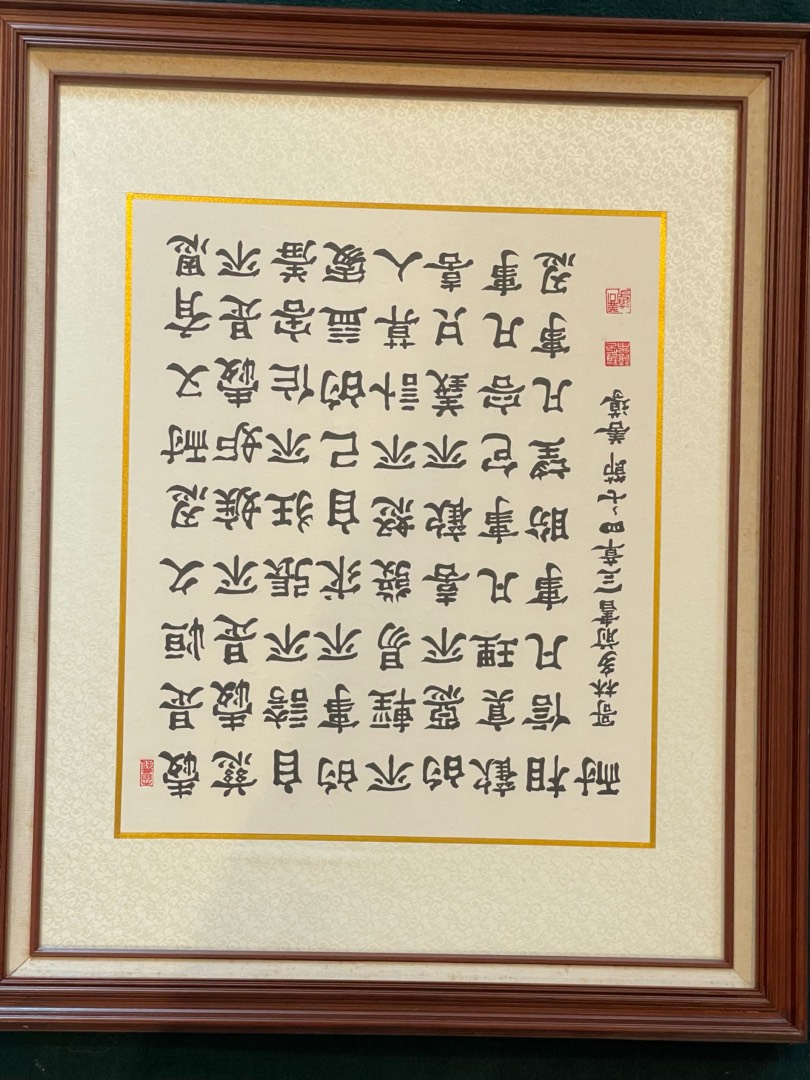 愛是恒久忍耐又有恩
慈愛是不嫉妒愛是不
自誇不張狂不作害羞
的事不求自己的益處
不輕易發怒不計算人
的惡不喜歡不義只喜
歡真理凡事包容凡事
相信凡事盼望凡事忍
耐
哥林多前書一三章四~七節 善導